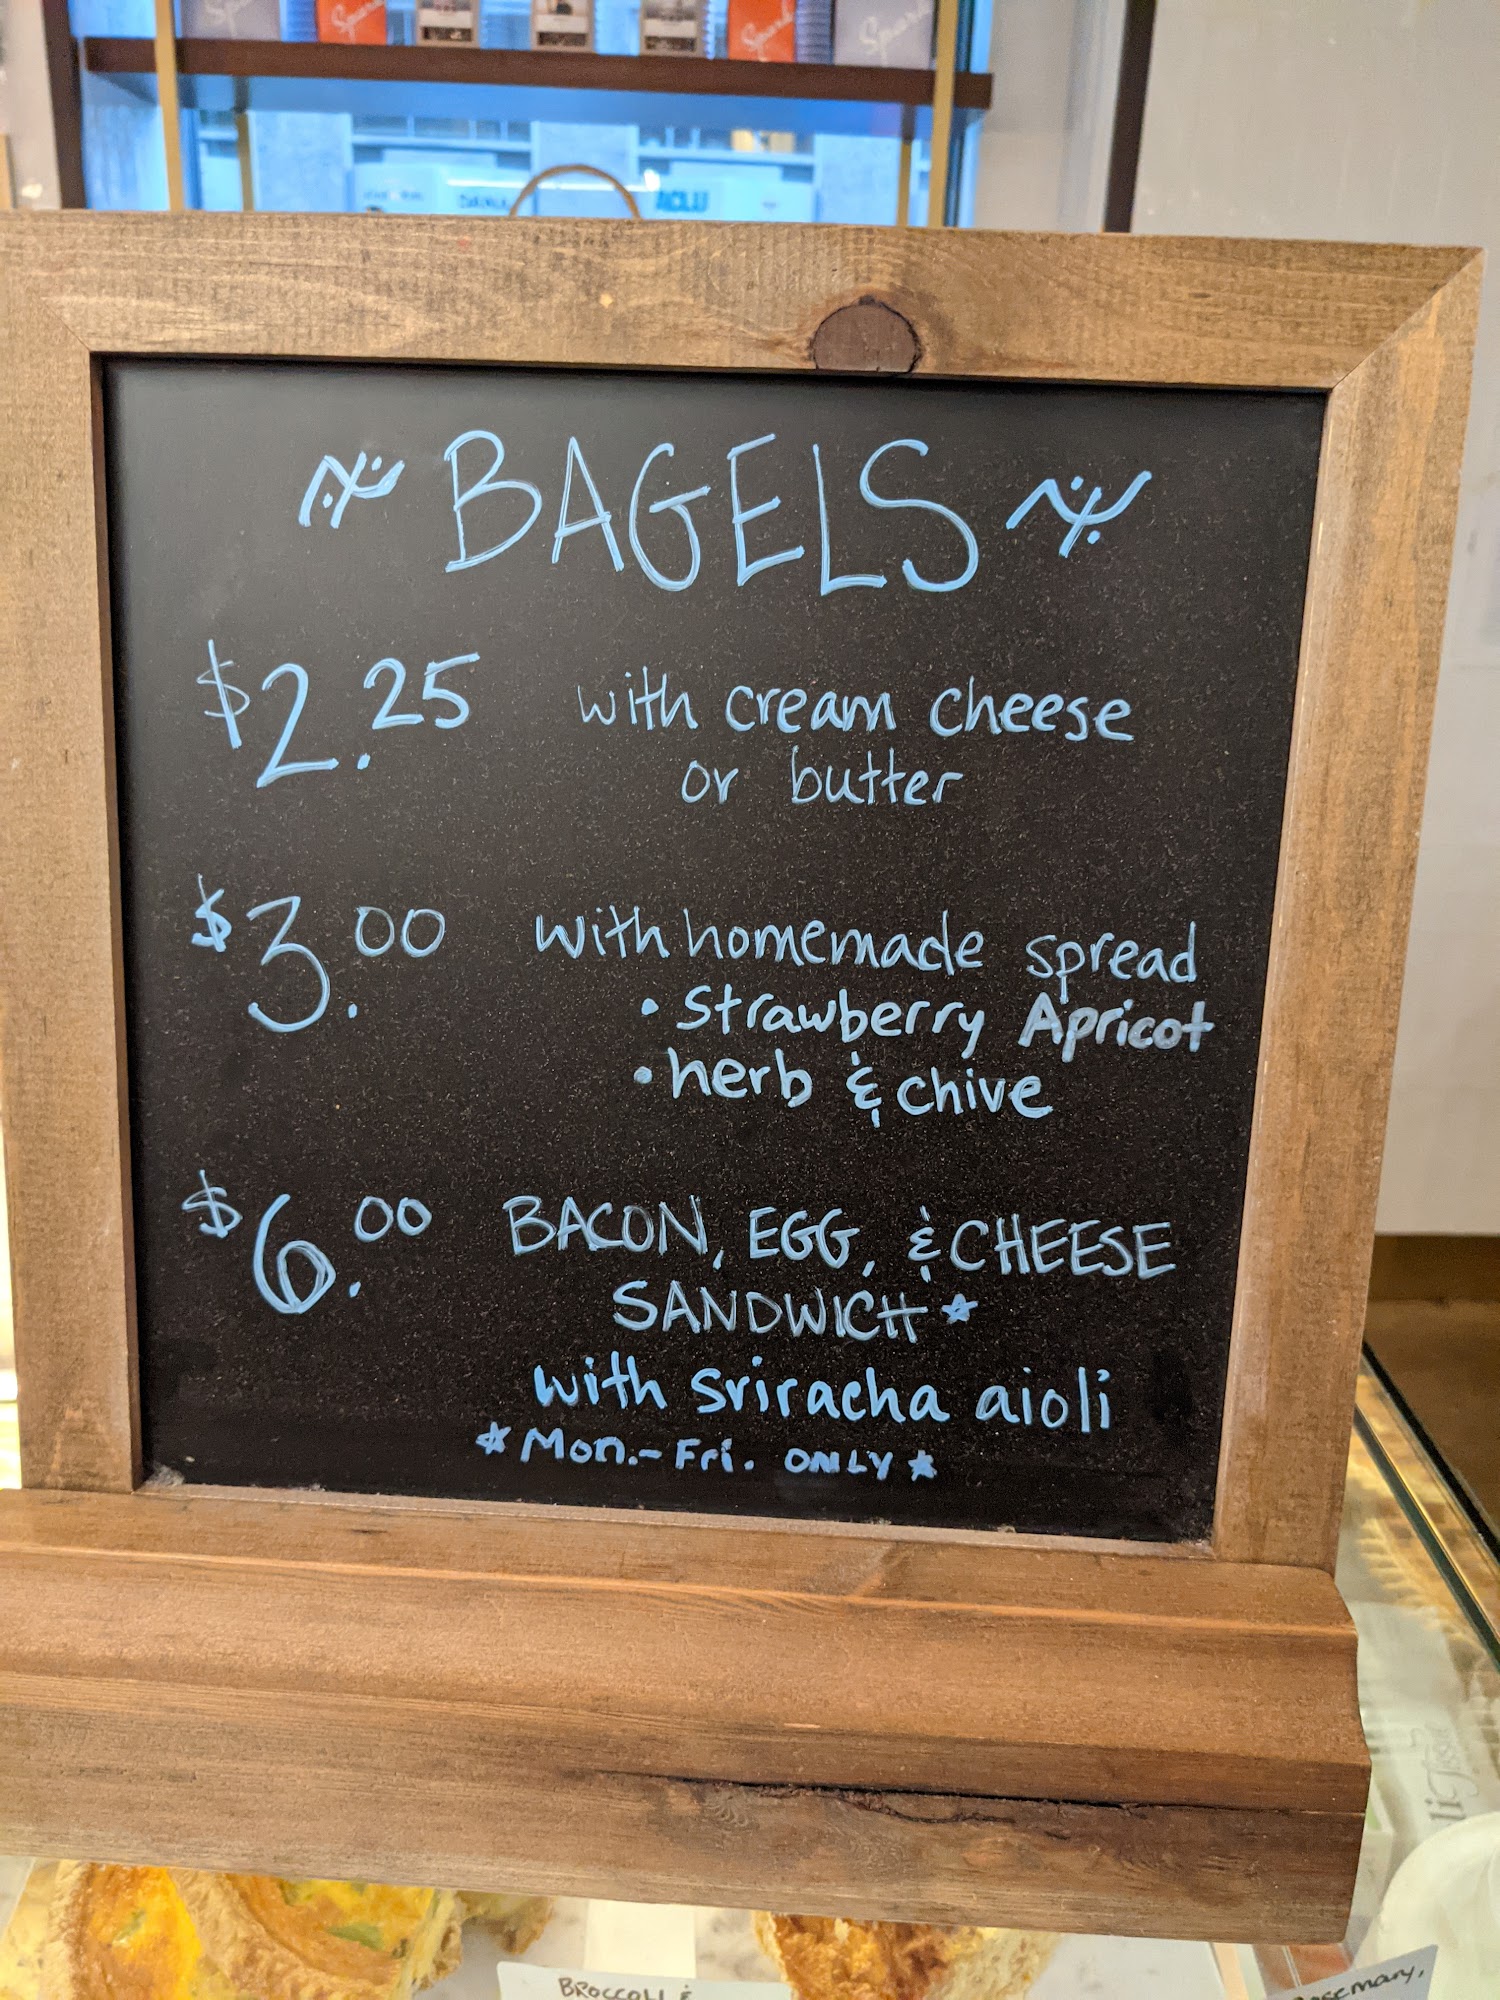 Spark
Spark
Spark
ACLU
BAGELS
$2.25 with cream cheese
or butter
$3.00 with homemade spread
• Strawberry Apricot
• herb & chive
$6.00 BACON, EGG, & CHEESE
SANDWICH*
with sriracha aioli
* Mon.-Fri. ONLY *
BROCCOLI &